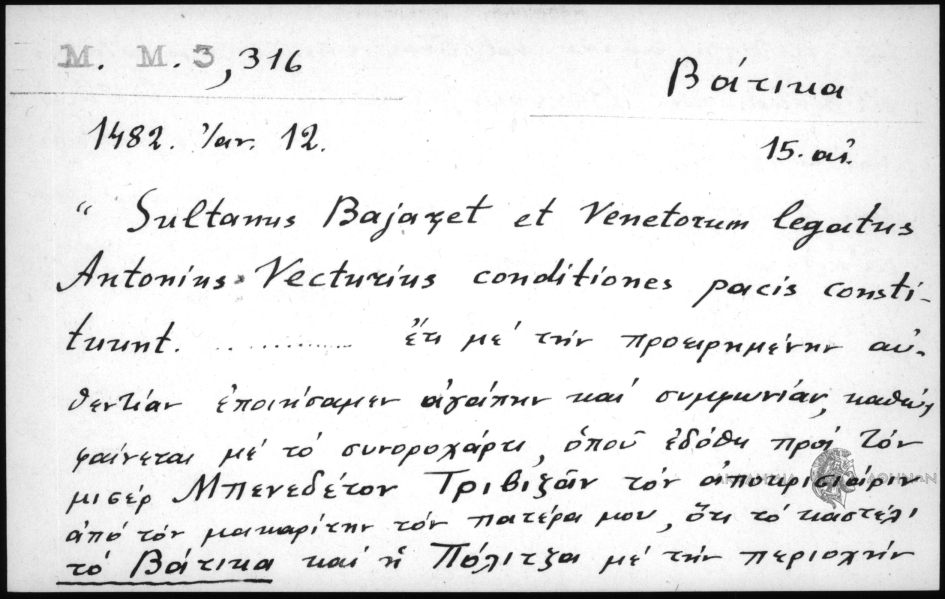 M. M. 3, 316
Βάτικα
1482. Ἰαν. 12.
15. αἰ.
“ Sultanus Bajazet et Venetorum legatus
Antonius Vecturius conditiones pacis consti-
tuunt. .............. ἔτι μὲ τὴν προειρημένην αὐ-
θεντίαν ἐποιήσαμεν ἀγάπην καὶ συμφωνίαν, καθὼς
φαίνεται μὲ τὸ συνοροχάρτι, ὁποῦ ἐδόθη πρὸς τὸν
μισὲρ Μπενεδέτον Τριβιζᾶν τὸν ἀποκρισιάριν
ἀπὸ τὸν μακαρίτην τὸν πατέρα μου, ὅτι τὸ καστέλι
τὸ Βάτικα καὶ ἡ Πόλιτζα μὲ τὴν περιοχὴν